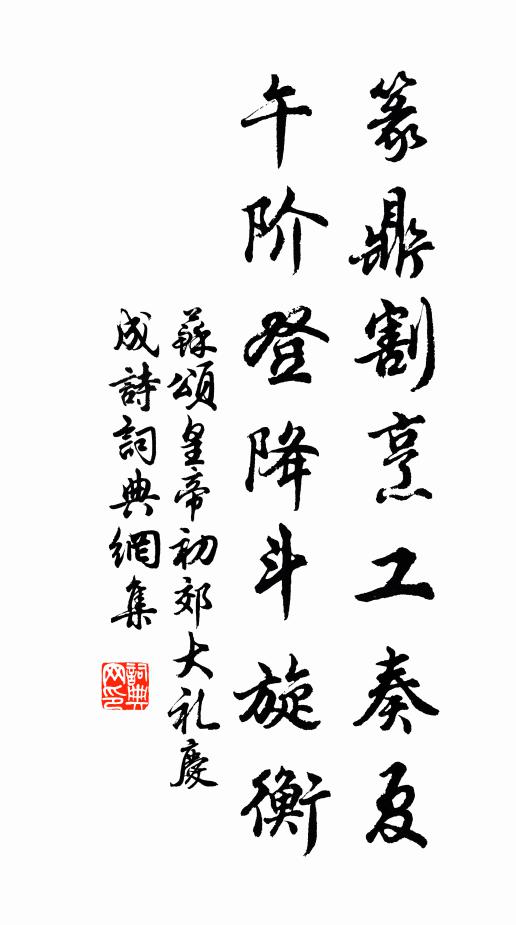 篆鼎割烹工奏夏
午阶登降斗旋衡
蘇頌皇帝初郊大礼慶
成詩詞典網集
詞典网印